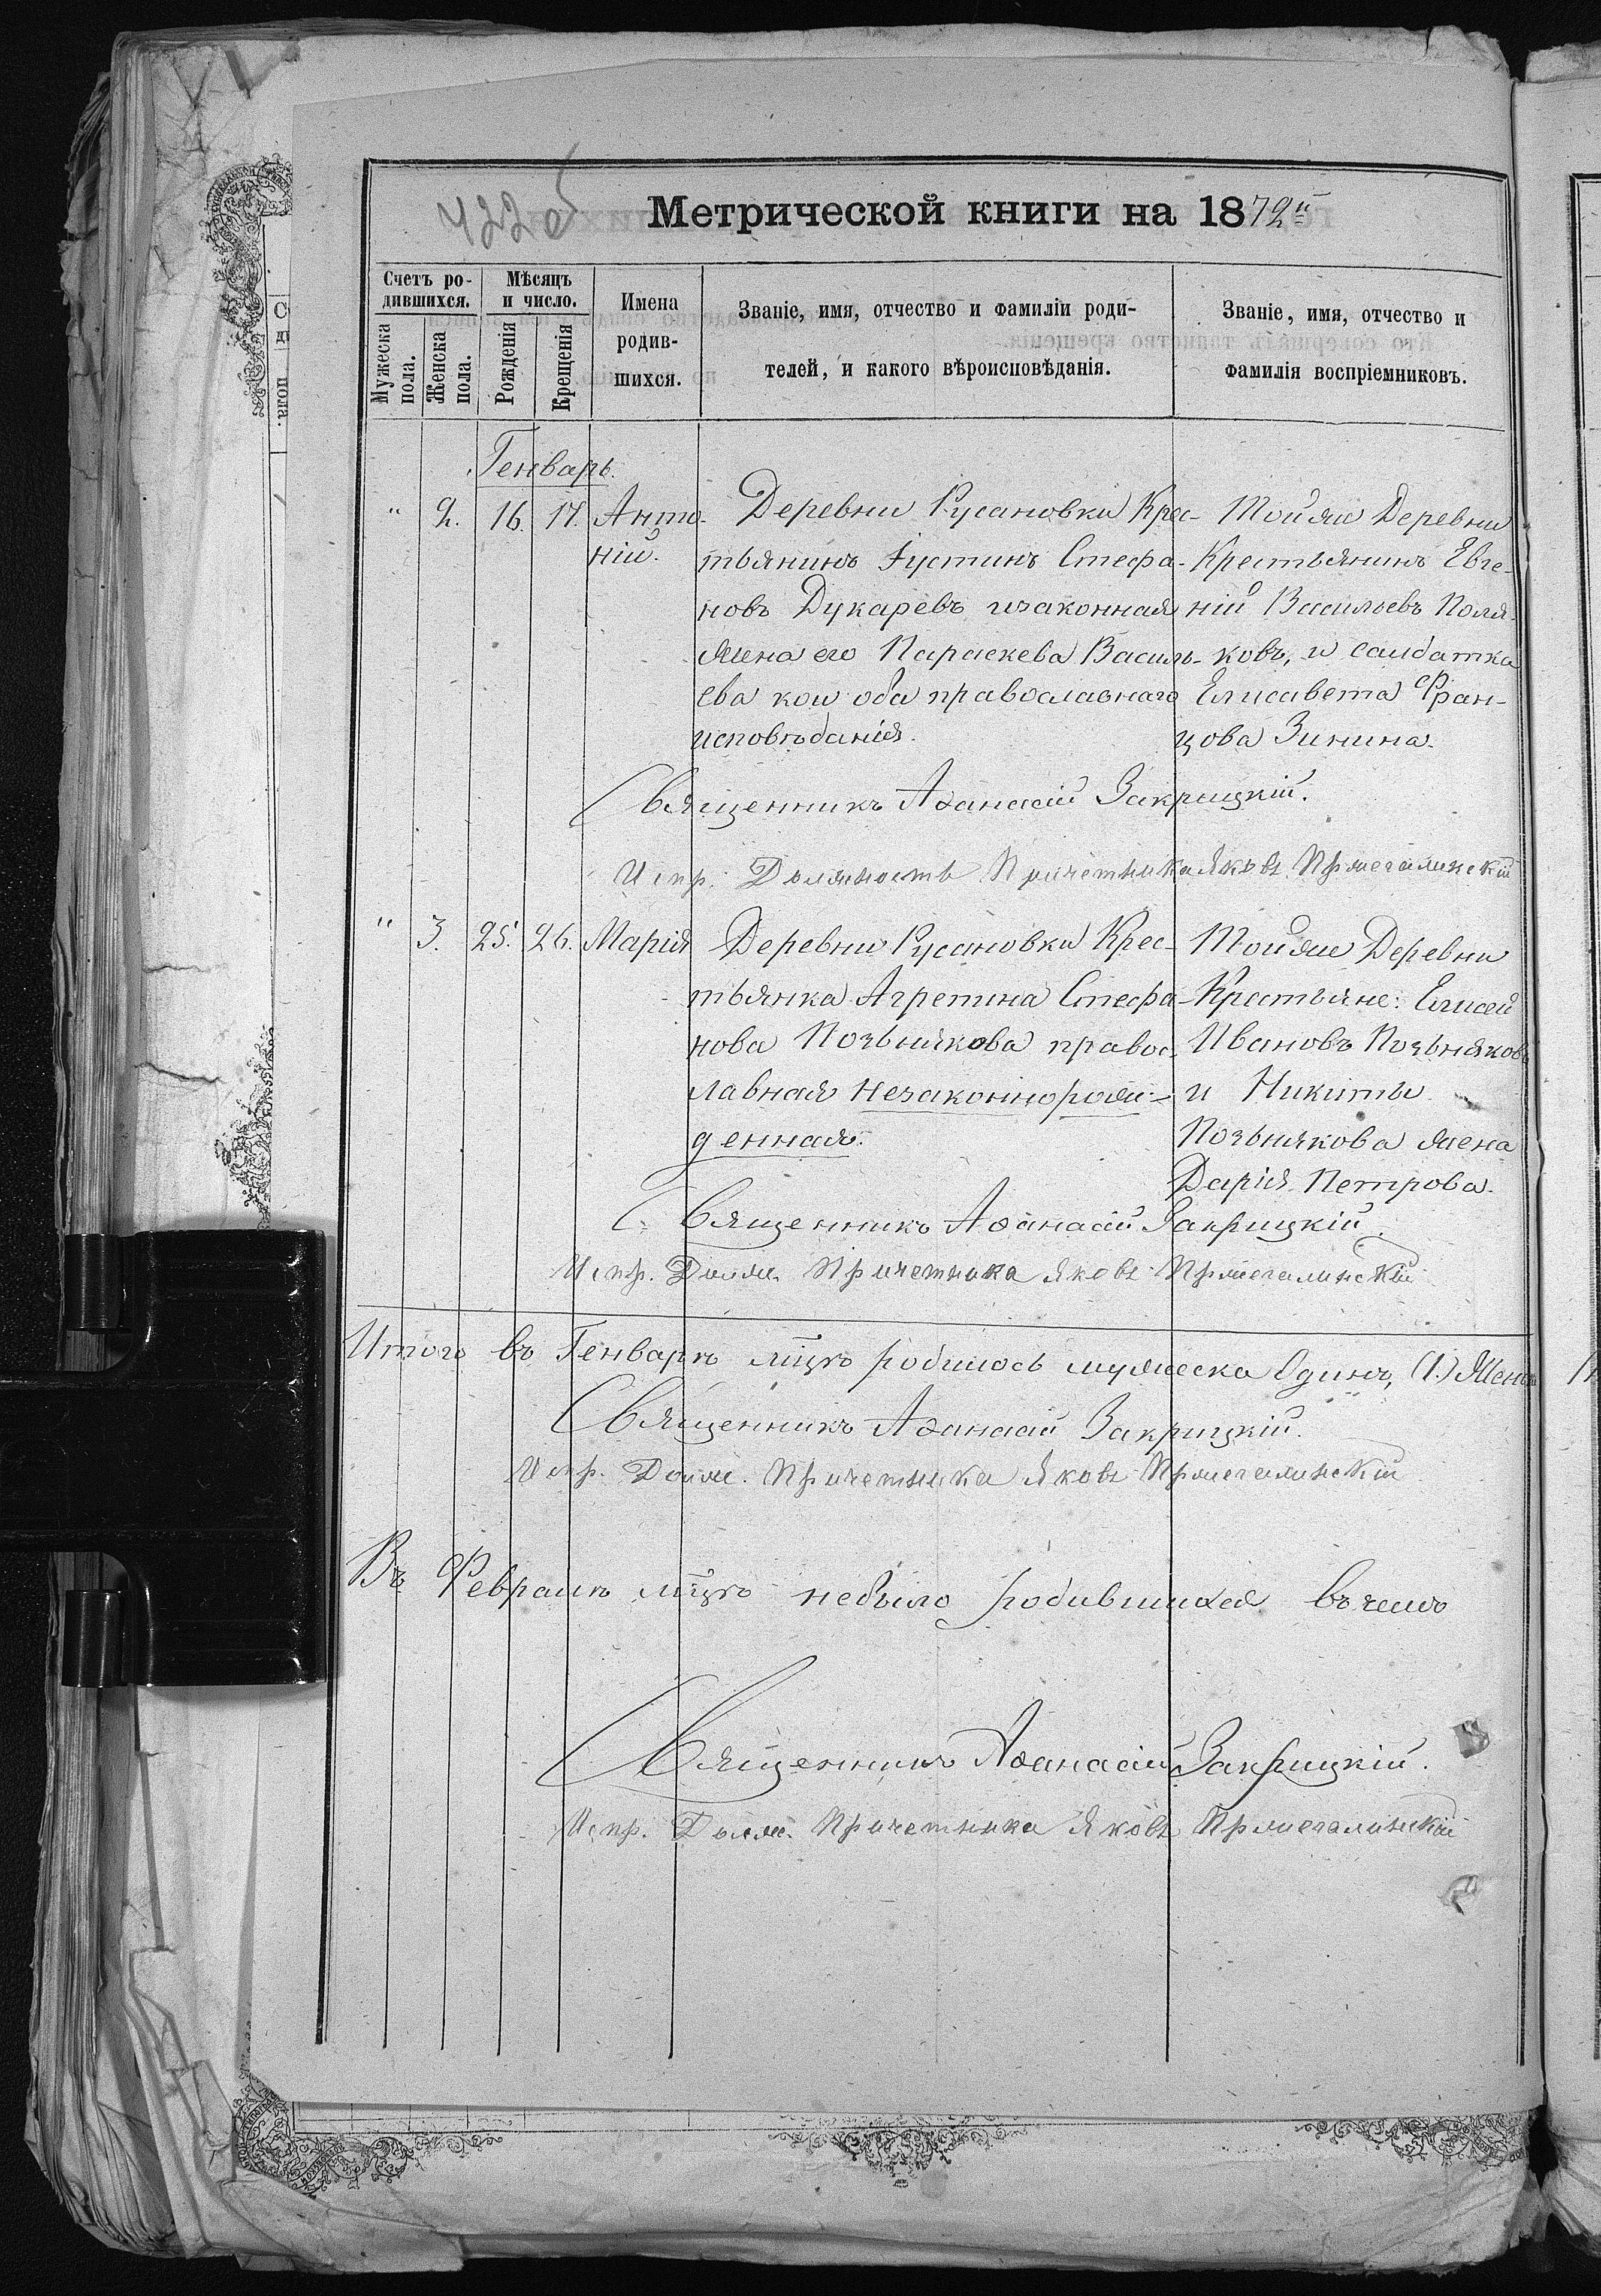 422об
Метрической книги на 1872й
Счетъ ро-
дившихся.
Мѣсяцъ
и число.
Мужеска
пола.
Женска
пола.
Рожденія
Крещенія
Имена
родив-
шихся.
Званіе, имя, отчество и фамиліи роди-
телей, и какого вѣроисповѣданія.
Званіе, имя, отчество и
фамилія воспріемниковъ.
Генварь.
" 2. 16. 17. Анто-
ній.
Деревни Русановки Крес-
тьянинъ Іустинъ Стефа-
новъ Дукаревъ изаконная
жена его Параскева Василь-
ева кои оба православнаго
исповѣданія.
Тойже Деревни
Крестьянинъ Евге-
ній Васильевъ Поля-
ковъ, и салдатка
Елисавета Фран-
цова Зинина.
Священникъ Аѳанасій Закрицкій.
Испр. Должность Причетника Яковъ
" 3. 25. 26. Марія
Деревни Русановки Крес-
тьянка Агрепина Стефа-
нова Позьнякова правос-
лавная Незаконнорож-
денная.
Тойже Деревни
Крестьяне: Елисей
Ивановъ Позьняковъ
и Никиты
Позьнякова жена
Дарія Петрова.
Священникъ Аѳанасій Закрицкій.
Испр. Долж. Причетника Яковъ
Итого въ Генварѣ мцѣ родилось мужеска Одинъ, (1.) Женска
Священникъ Аѳанасій Закрицкій.
Испр. Долж. Причетника Яковъ
Въ Февралѣ мцѣ небыло родившихся въ чемъ
Священникъ Аѳанасій Закрицкій.
Испр. Долж. Причетника Яковъ